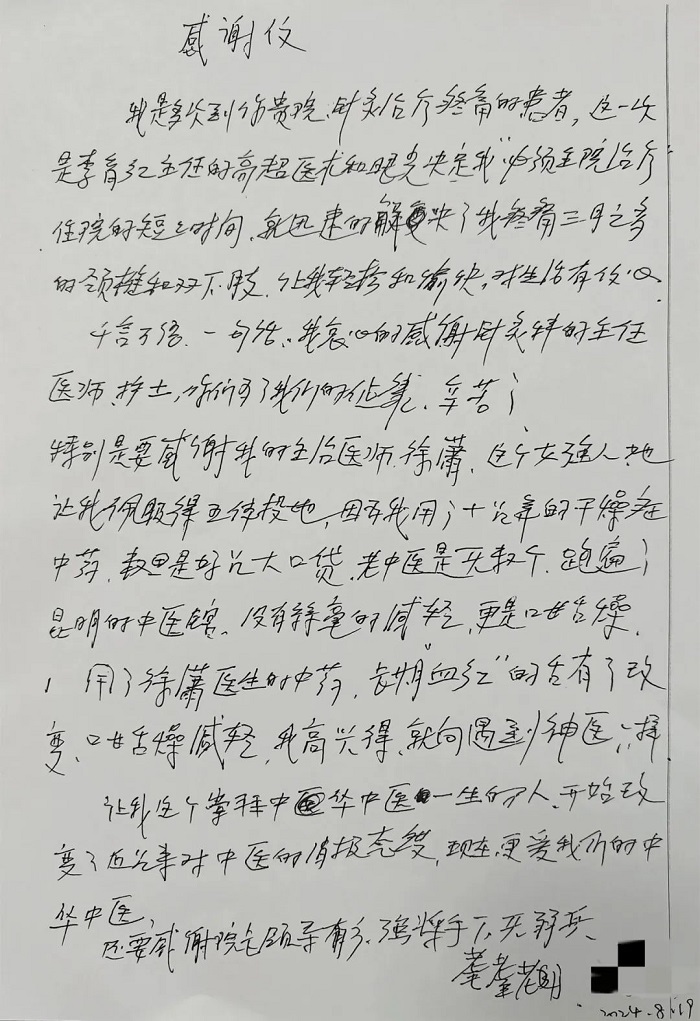 感谢仪
我是多次到你贵院针灸治疗疼痛的患者，这一次
是李育红主任的高超医术和眼光决定我"必须住院治疗"
住院的短短时间，就迅速的解决了我疼痛三月之多
的颈椎和双下肢，让我轻松和愉快，对生活有信心。
千言万语，一句话、我衷心的感谢针灸科的主任
医师、护士，你们为了我们的健康、辛苦了
特别是要感谢我的主治医师徐萧，这个女强人她
让我佩服得五体投地，因为我用了十几年的干燥症
中药，数里是好几大口袋，老中医是无数个，跑遍了
昆明的中医馆、没有丝毫的减轻，更是口苦舌燥，
用了徐萧医生的中药，长期"血红"的舌有了改
变、口苦舌燥减轻，我高兴得、就向遇到神医一样
让我这个崇拜中华中医一生的人，开始改
变了近几年对中医的消极态度，现在，更爱我们的中
华中医，
还要感谢院领导有方、强将手下无弱兵、
2024.8.19